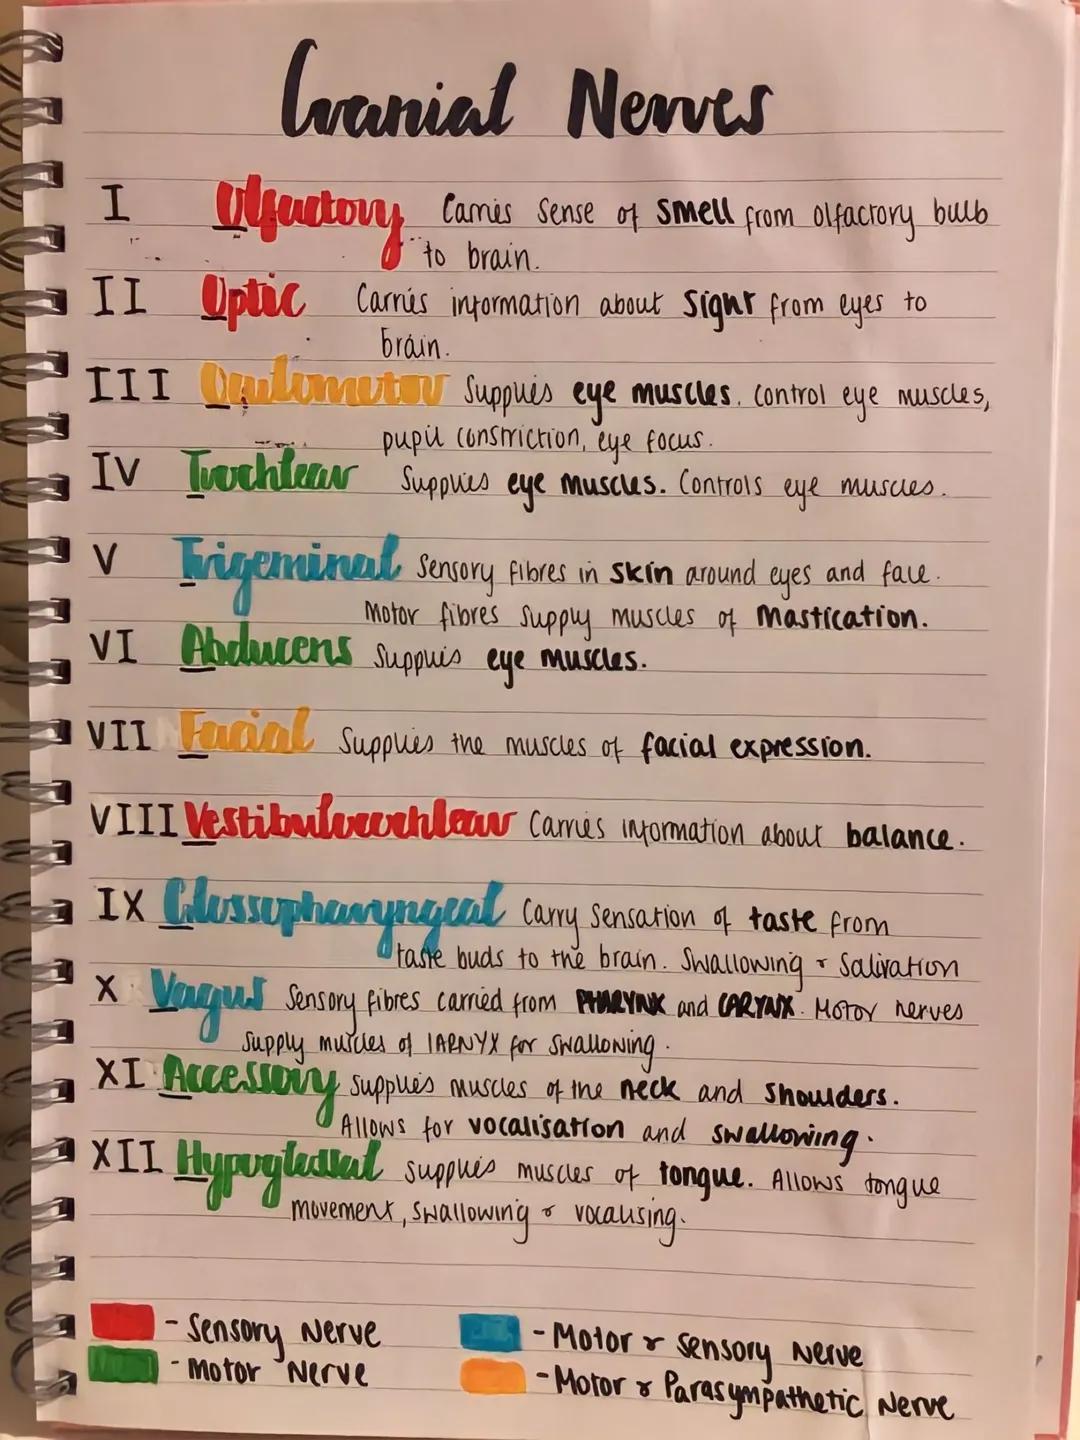 Cranial Nerves
I Olfactory Carries sense of smell from olfactory bulb
to brain.
II Optic Carries information about sight from eyes to
brain.
III Oculomotor Supplies eye muscles. Control eye muscles,
pupil constriction, eye focus.
IV Trochlear Supplies eye muscles. Controls eye muscles.
V Trigeminal Sensory fibres in skin around eyes and face.
Motor fibres supply muscles of Mastication.
VI Abducens Supplies eye muscles.
VII Facial Supplies the muscles of facial expression.
VIII Vestibulocochlear Carries information about balance.
IX Glossopharyngeal Carry sensation of taste from
taste buds to the brain. Swallowing & Salivation
X Vagus Sensory fibres carried from PHARYNX and LARYNX. Motor nerves
supply muscles of LARNYX for swallowing.
XI Accessory supplies muscles of the neck and shoulders.
Allows for vocalisation and swallowing.
XII Hypoglossal supplies muscles of tongue. Allows tongue
movement, swallowing & vocalising.
- Sensory Nerve - Motor & sensory Nerve
- Motor Nerve - Motor & Parasympathetic Nerve